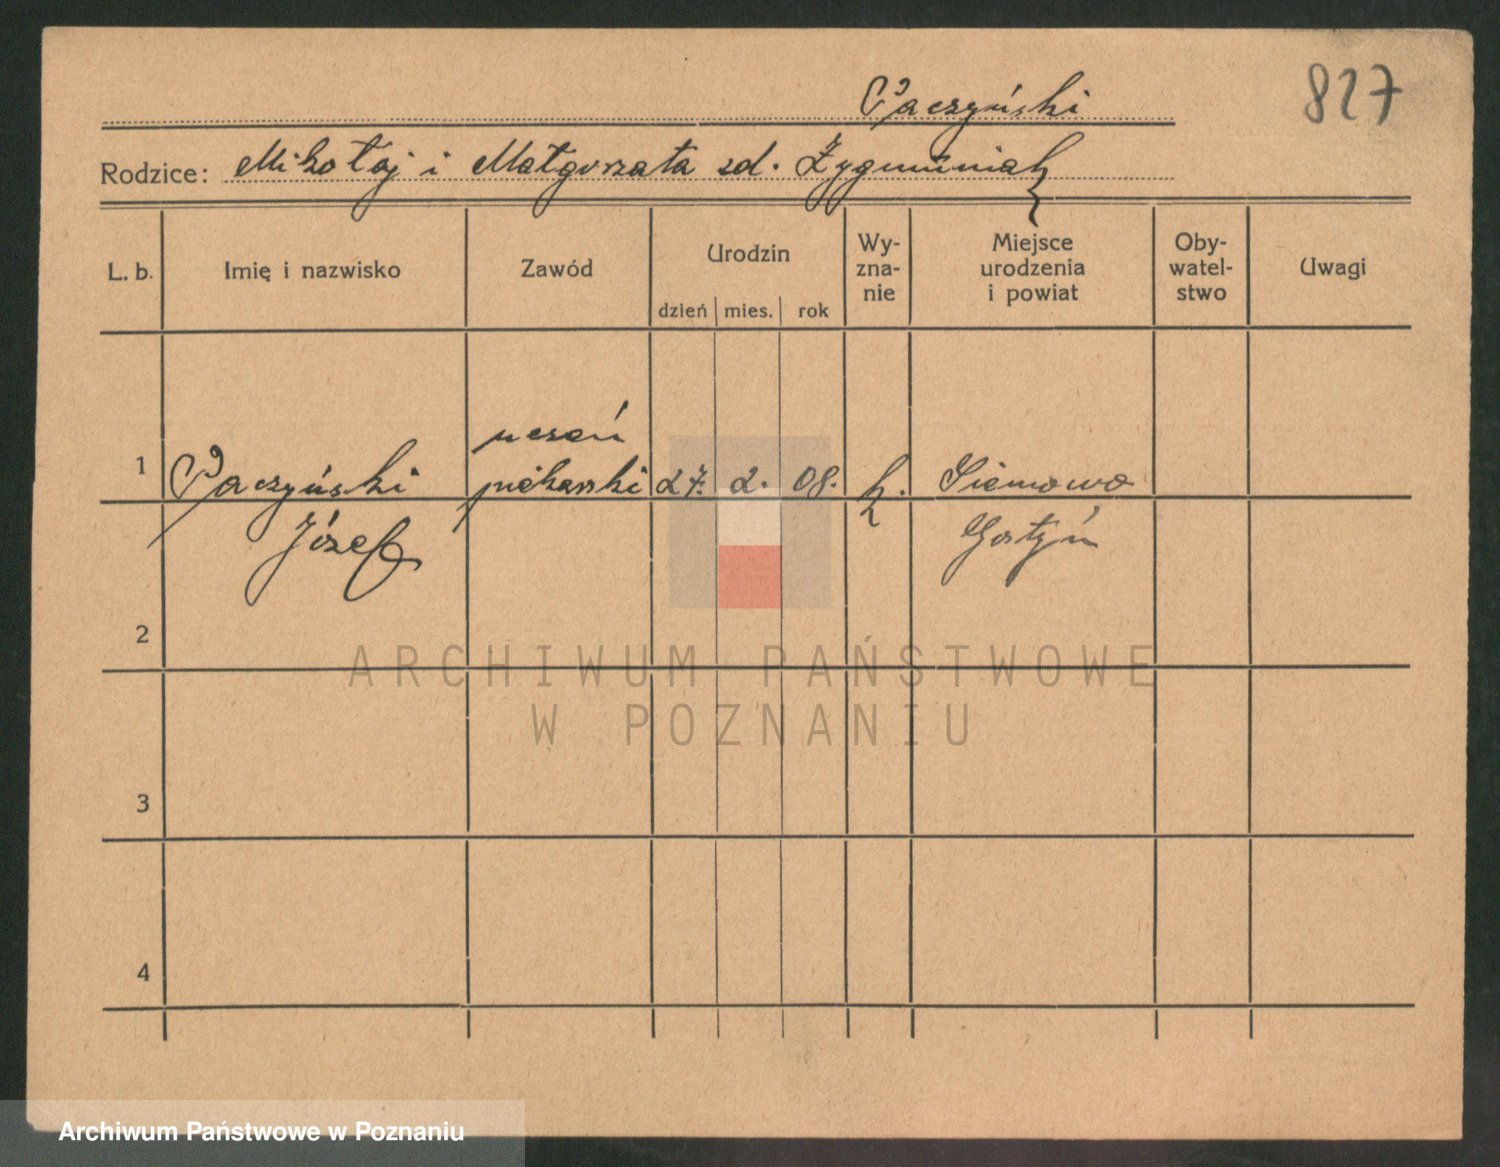 827
Paczyński
Rodzice: Mikołaj i Małgorzata zd. Zygmuniak
L. b. Imię i nazwisko Zawód Urodzin dzień mies. rok Wy-zna-nie Miejsce urodzenia i powiat Oby-watel-stwo Uwagi
uczeń
1 Paczyński piekarski 27. 2. 08. k. Siemowo
Józef Gostyń
2
3
4
ARCHIWUM PAŃSTWOWE
W POZNANIU
Archiwum Państwowe w Poznaniu